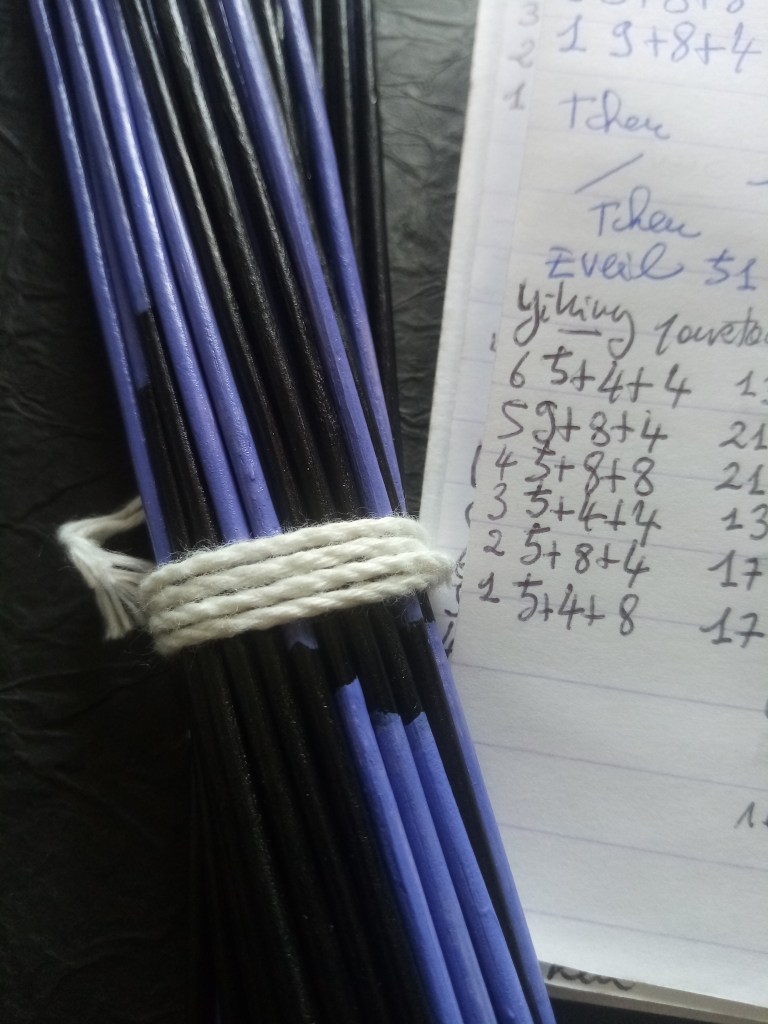 3
2 1 9+8+4
1 Tchen
Tchen
Eveil 51
Yi King
6 5+4+4
5 9+8+4 21
4 5+8+8 21
3 5+4+4 13
2 5+8+4 17
1 5+4+8 17